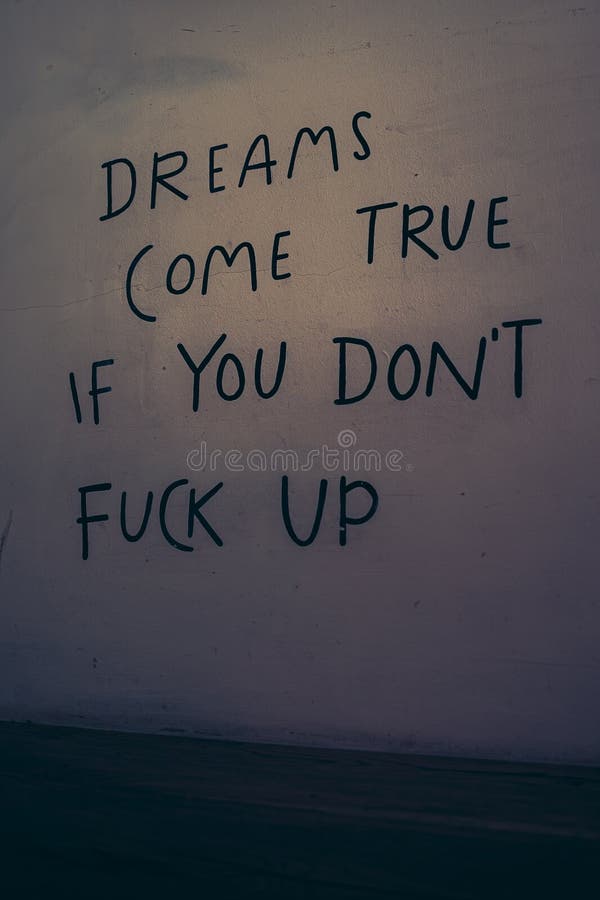 DREAMS
COME TRUE
IF YOU DON'T
FUCK UP
dreamstime